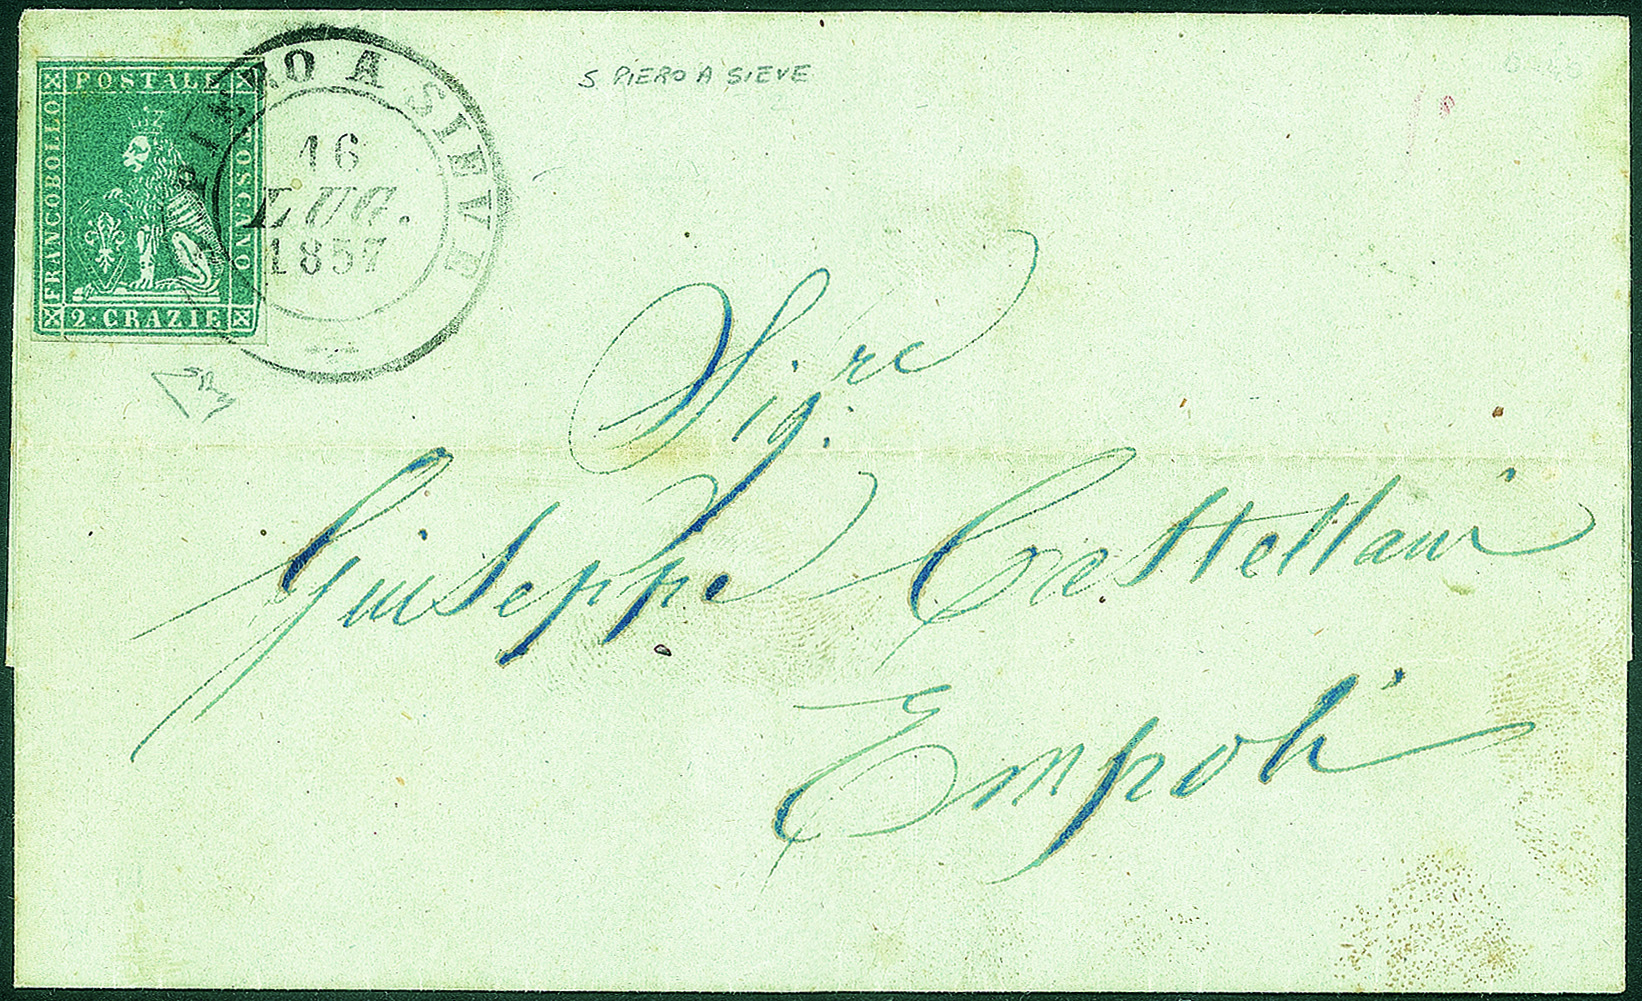 POSTALE
FRANCOBOLLO
TOSCANO
2·CRAZIE
PIERO A SIEVE
16
LUG.
1857
S PIERO A SIEVE
Sig.re
Giuseppe Castellani
Empoli